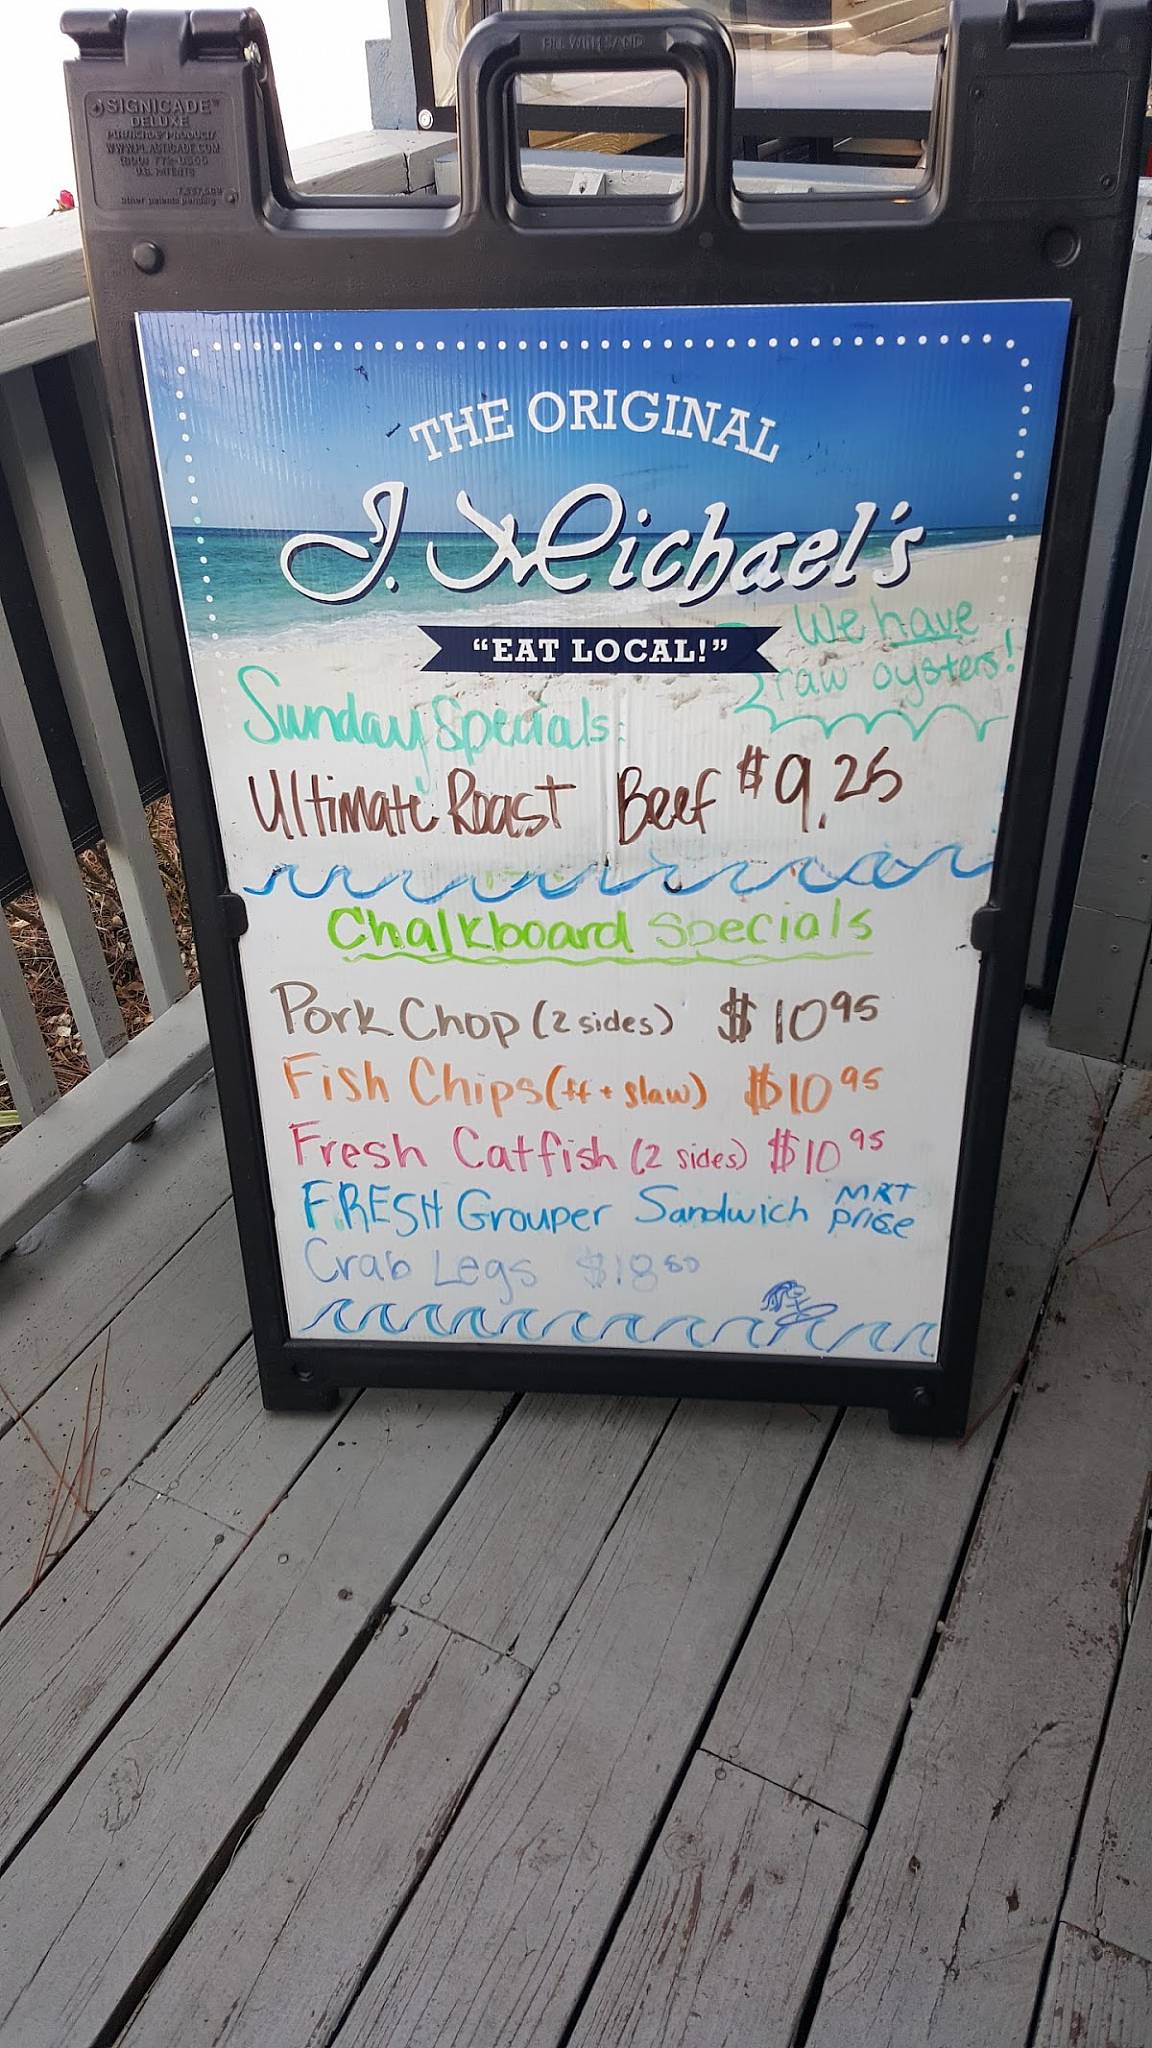 FILL WITH SAND
SIGNICADE™
DELUXE
PLASTICADE PRODUCTS
WWW.PLASTICADE.COM
U.S. PATENTS
other patents pending
THE ORIGINAL
J. Michael's
"EAT LOCAL!"
We have
raw oysters!
Sunday Specials:
Ultimate Roast Beef $9.25
Chalkboard Specials
Pork Chop (2 sides) $10 95
Fish Chips (ff + slaw) $10 95
Fresh Catfish (2 sides) $10 95
FRESH Grouper Sandwich MKT price
Crab Legs $18 50